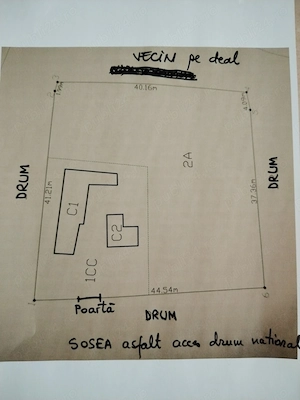 VECIN pe deal
40.16m
DRUM
41.21m
2A
37.36m
DRUM
C1
C2
1CC
44.54m
6
Poartă
DRUM
SOSEA asfalt acces drum national